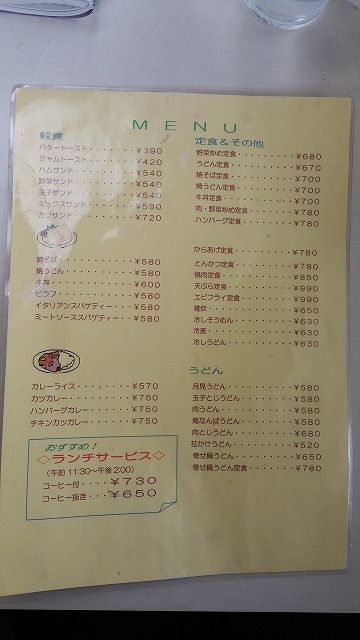 MENU
軽食
バタートースト・・・・・¥390
ジャムトースト・・・・・¥420
ハムサンド・・・・・・・¥540
野菜サンド・・・・・・・¥540
玉子サンド・・・・・・・¥540
ミックスサンド・・・・・¥590
カツサンド・・・・・・・¥720
焼そば・・・・・・・・・¥580
焼うどん・・・・・・・・¥580
牛丼・・・・・・・・・・¥600
ピラフ・・・・・・・・・¥580
イタリアンスパゲティー・・¥580
ミートソーススパゲティー・・¥580
カレーライス・・・・・・¥570
カツカレー・・・・・・・¥750
ハンバーグカレー・・・・¥750
チキンカツカレー・・・・¥750
おすすめ!
◇ランチサービス◇
(午前11:30〜午後2:00)
コーヒー付・・・・¥730
コーヒー抜き・・・¥650
定食&その他
野菜炒め定食・・・・・・¥680
うどん定食・・・・・・・¥670
焼そば定食・・・・・・・¥700
焼うどん定食・・・・・・¥700
牛丼定食・・・・・・・・¥700
肉・野菜炒め定食・・・・¥780
ハンバーグ定食・・・・・¥780
からあげ定食・・・・・・¥780
とんかつ定食・・・・・・¥780
焼肉定食・・・・・・・・¥850
天ぷら定食・・・・・・・¥990
エビフライ定食・・・・・¥990
雑炊・・・・・・・・・・¥650
冷しそうめん・・・・・・¥630
冷麦・・・・・・・・・・¥630
冷しうどん・・・・・・・¥630
うどん
月見うどん・・・・・・・¥580
玉子とじうどん・・・・・¥580
肉うどん・・・・・・・・¥580
鳥なんばうどん・・・・・¥580
肉とじうどん・・・・・・¥580
花かけうどん・・・・・・¥520
寄せ鍋うどん・・・・・・¥650
寄せ鍋うどん定食・・・・¥780